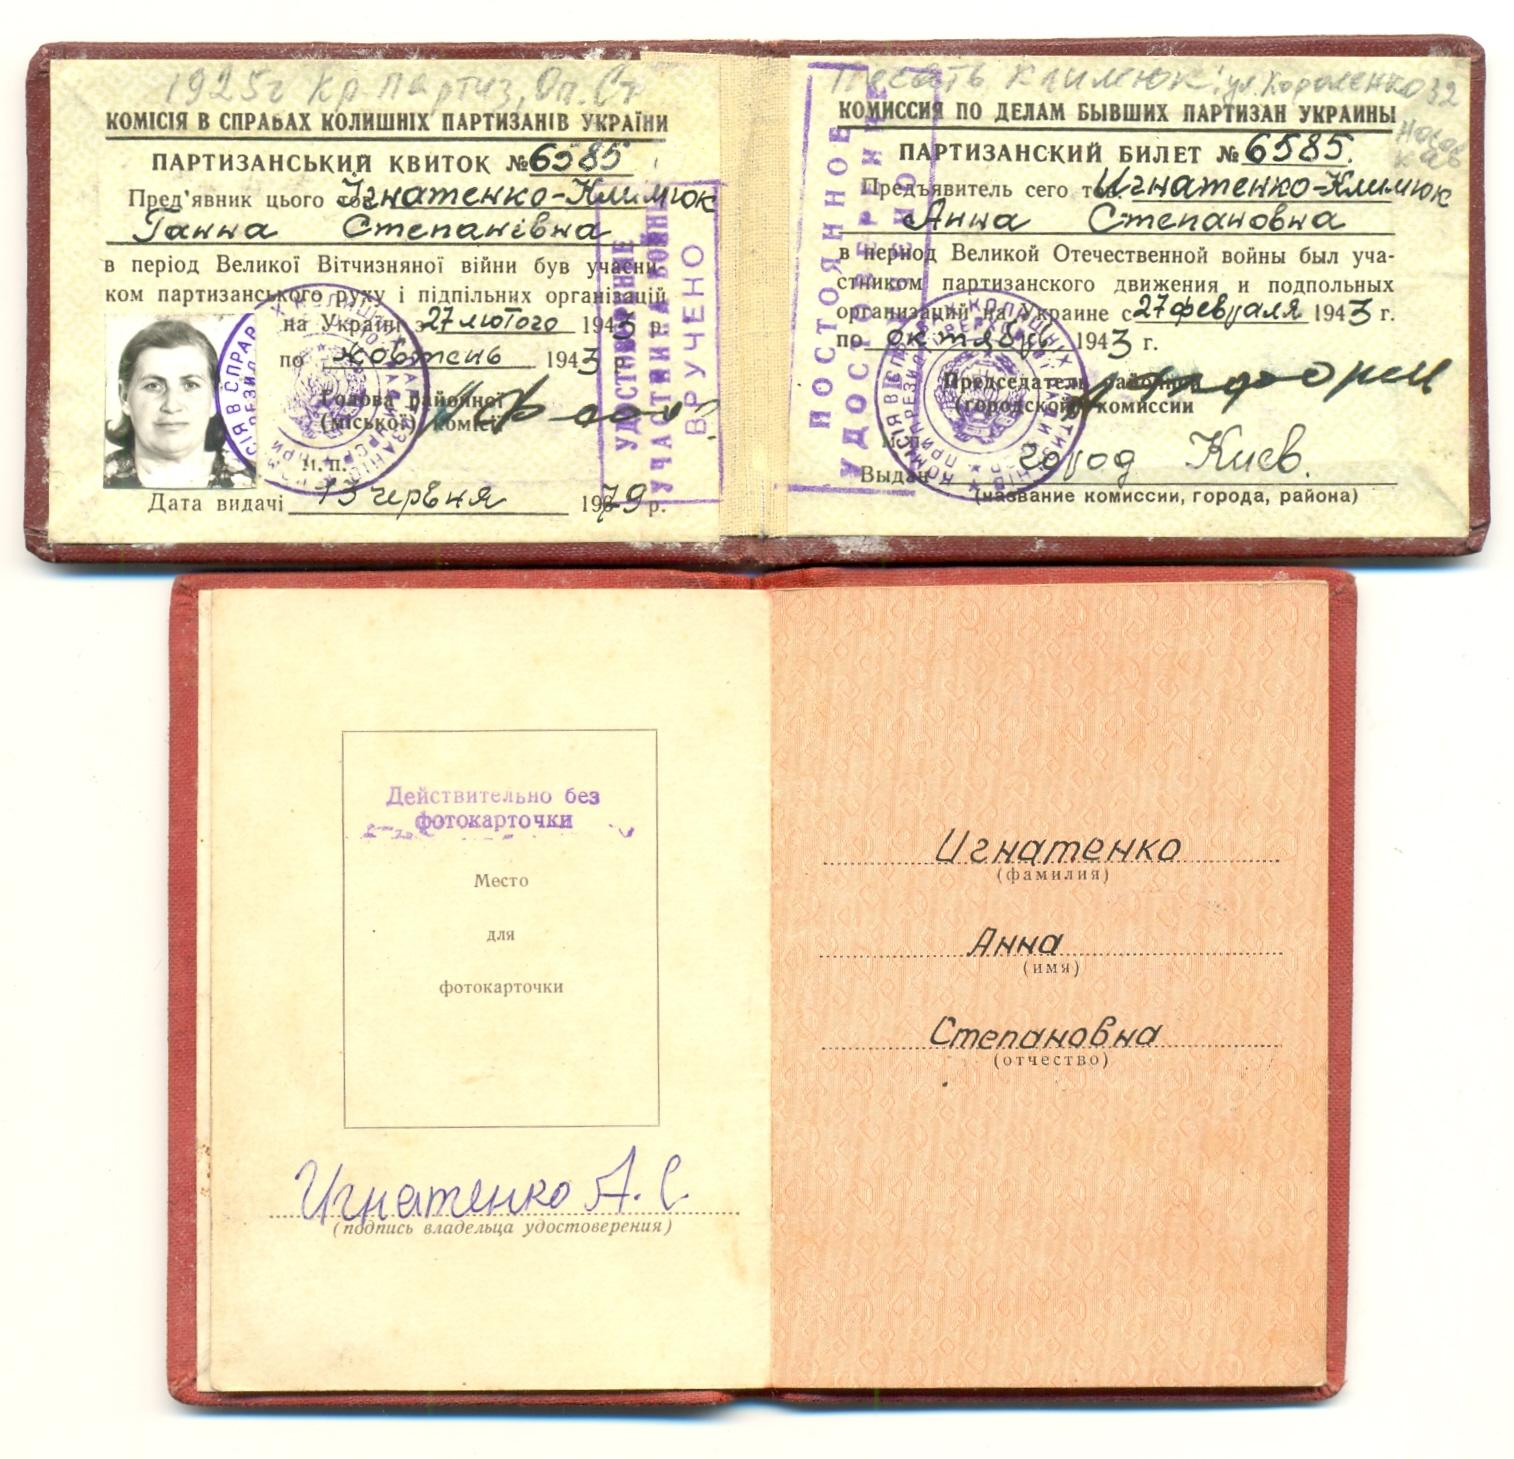 1925г Кр. партиз, Оп. Ст
КОМІСІЯ В СПРАВАХ КОЛИШНІХ ПАРТИЗАНІВ УКРАЇНИ
ПАРТИЗАНСЬКИЙ КВИТОК № 6585
Пред'явник цього тов. Ігнатенко-Климюк
Ганна Степанівна
в період Великої Вітчизняної війни був учасни-
ком партизанського руху і підпільних організацій
на Україні з 27 лютого 1943 р.
по жовтень 1943 р.
Голова районної
(міської) комісії
М. П.
Дата видачі 15 червня 1979 р.
УДОСТОВЕРЕНИЕ
УЧАСТНИКА ВОЙНЫ
ВРУЧЕНО
Писать Климюк: ул. Короленко 32
КОМИССИЯ ПО ДЕЛАМ БЫВШИХ ПАРТИЗАН УКРАИНЫ
ПАРТИЗАНСКИЙ БИЛЕТ № 6585.
Предъявитель сего тов. Игнатенко-Климюк
Анна Степановна
в период Великой Отечественной войны был уча-
стником партизанского движения и подпольных
организаций на Украине с 27 февраля 1943 г.
по октябрь 1943 г.
Председатель районной
(городской) комиссии
М. П.
Выдан город Киев.
(название комиссии, города, района)
ПОСТОЯННОЕ
УДОСТОВЕРЕНИЕ
Действительно без
фотокарточки
Место
для
фотокарточки
Игнатенко А. С.
(подпись владельца удостоверения)
Игнатенко
(фамилия)
Анна
(имя)
Степановна
(отчество)